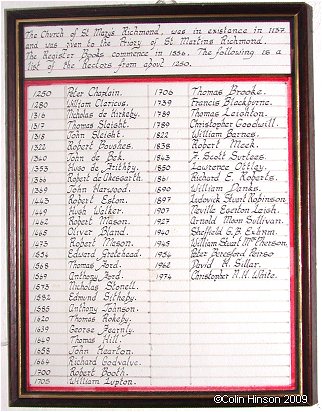 The Church of St Marys Richmond, was in existance in 1137
and was given to the Priory of St Martins Richmond.
The Register Books commence in 1556. The following is a
list of the Rectors from about 1250.
1250 Peter Chaplain.
1280 William Clericus.
1316 Nicholas de Kirkeby.
1317 Thomas Sleight.
1318 John Sleight.
1322 Robert Boushes.
1340 John de Bek.
1353 Hugo de
1360 Robert de
1369 John Harwood.
1443 Robert Eston.
1449 Hugh Walker.
1462 Robert Mason.
1465 Oliver Bland.
1473 Robert Mason.
1534 Edward Gretehead.
1565 Thomas Ford.
1567 Anthony Ford.
1573 Nicholas Stonell.
1582 Edmund Sitheby.
1585 Anthony Joanson.
1620 Thomas Rokeby.
1639 George Fearnly.
1649 Thomas Hill.
1658 John Hearton.
1664 Richard
1700 Robert Booth.
1705 William Lupton.
1706 Thomas Brooke.
1739 Francis Blackburne.
Thomas Leighton.
Christopher Goodwill.
1822 William Barnes.
1838 Robert Meek.
1843 F. Scott Surtees.
1850 Lawrence Ottley.
1861 Richard E. Roberts.
1890 William Danks.
1897 Ludovick Stuart Robinson
1907 Neville Egerton Leigh.
1927 Arnold Moon Sullivan.
1940 Sheffield G.B. Exham.
1945 William Stuart McPherson
1954 Peter Beresford
1960 David H. Sillar.
1974 Christopher N.H. White.
©Colin Hinson 2009